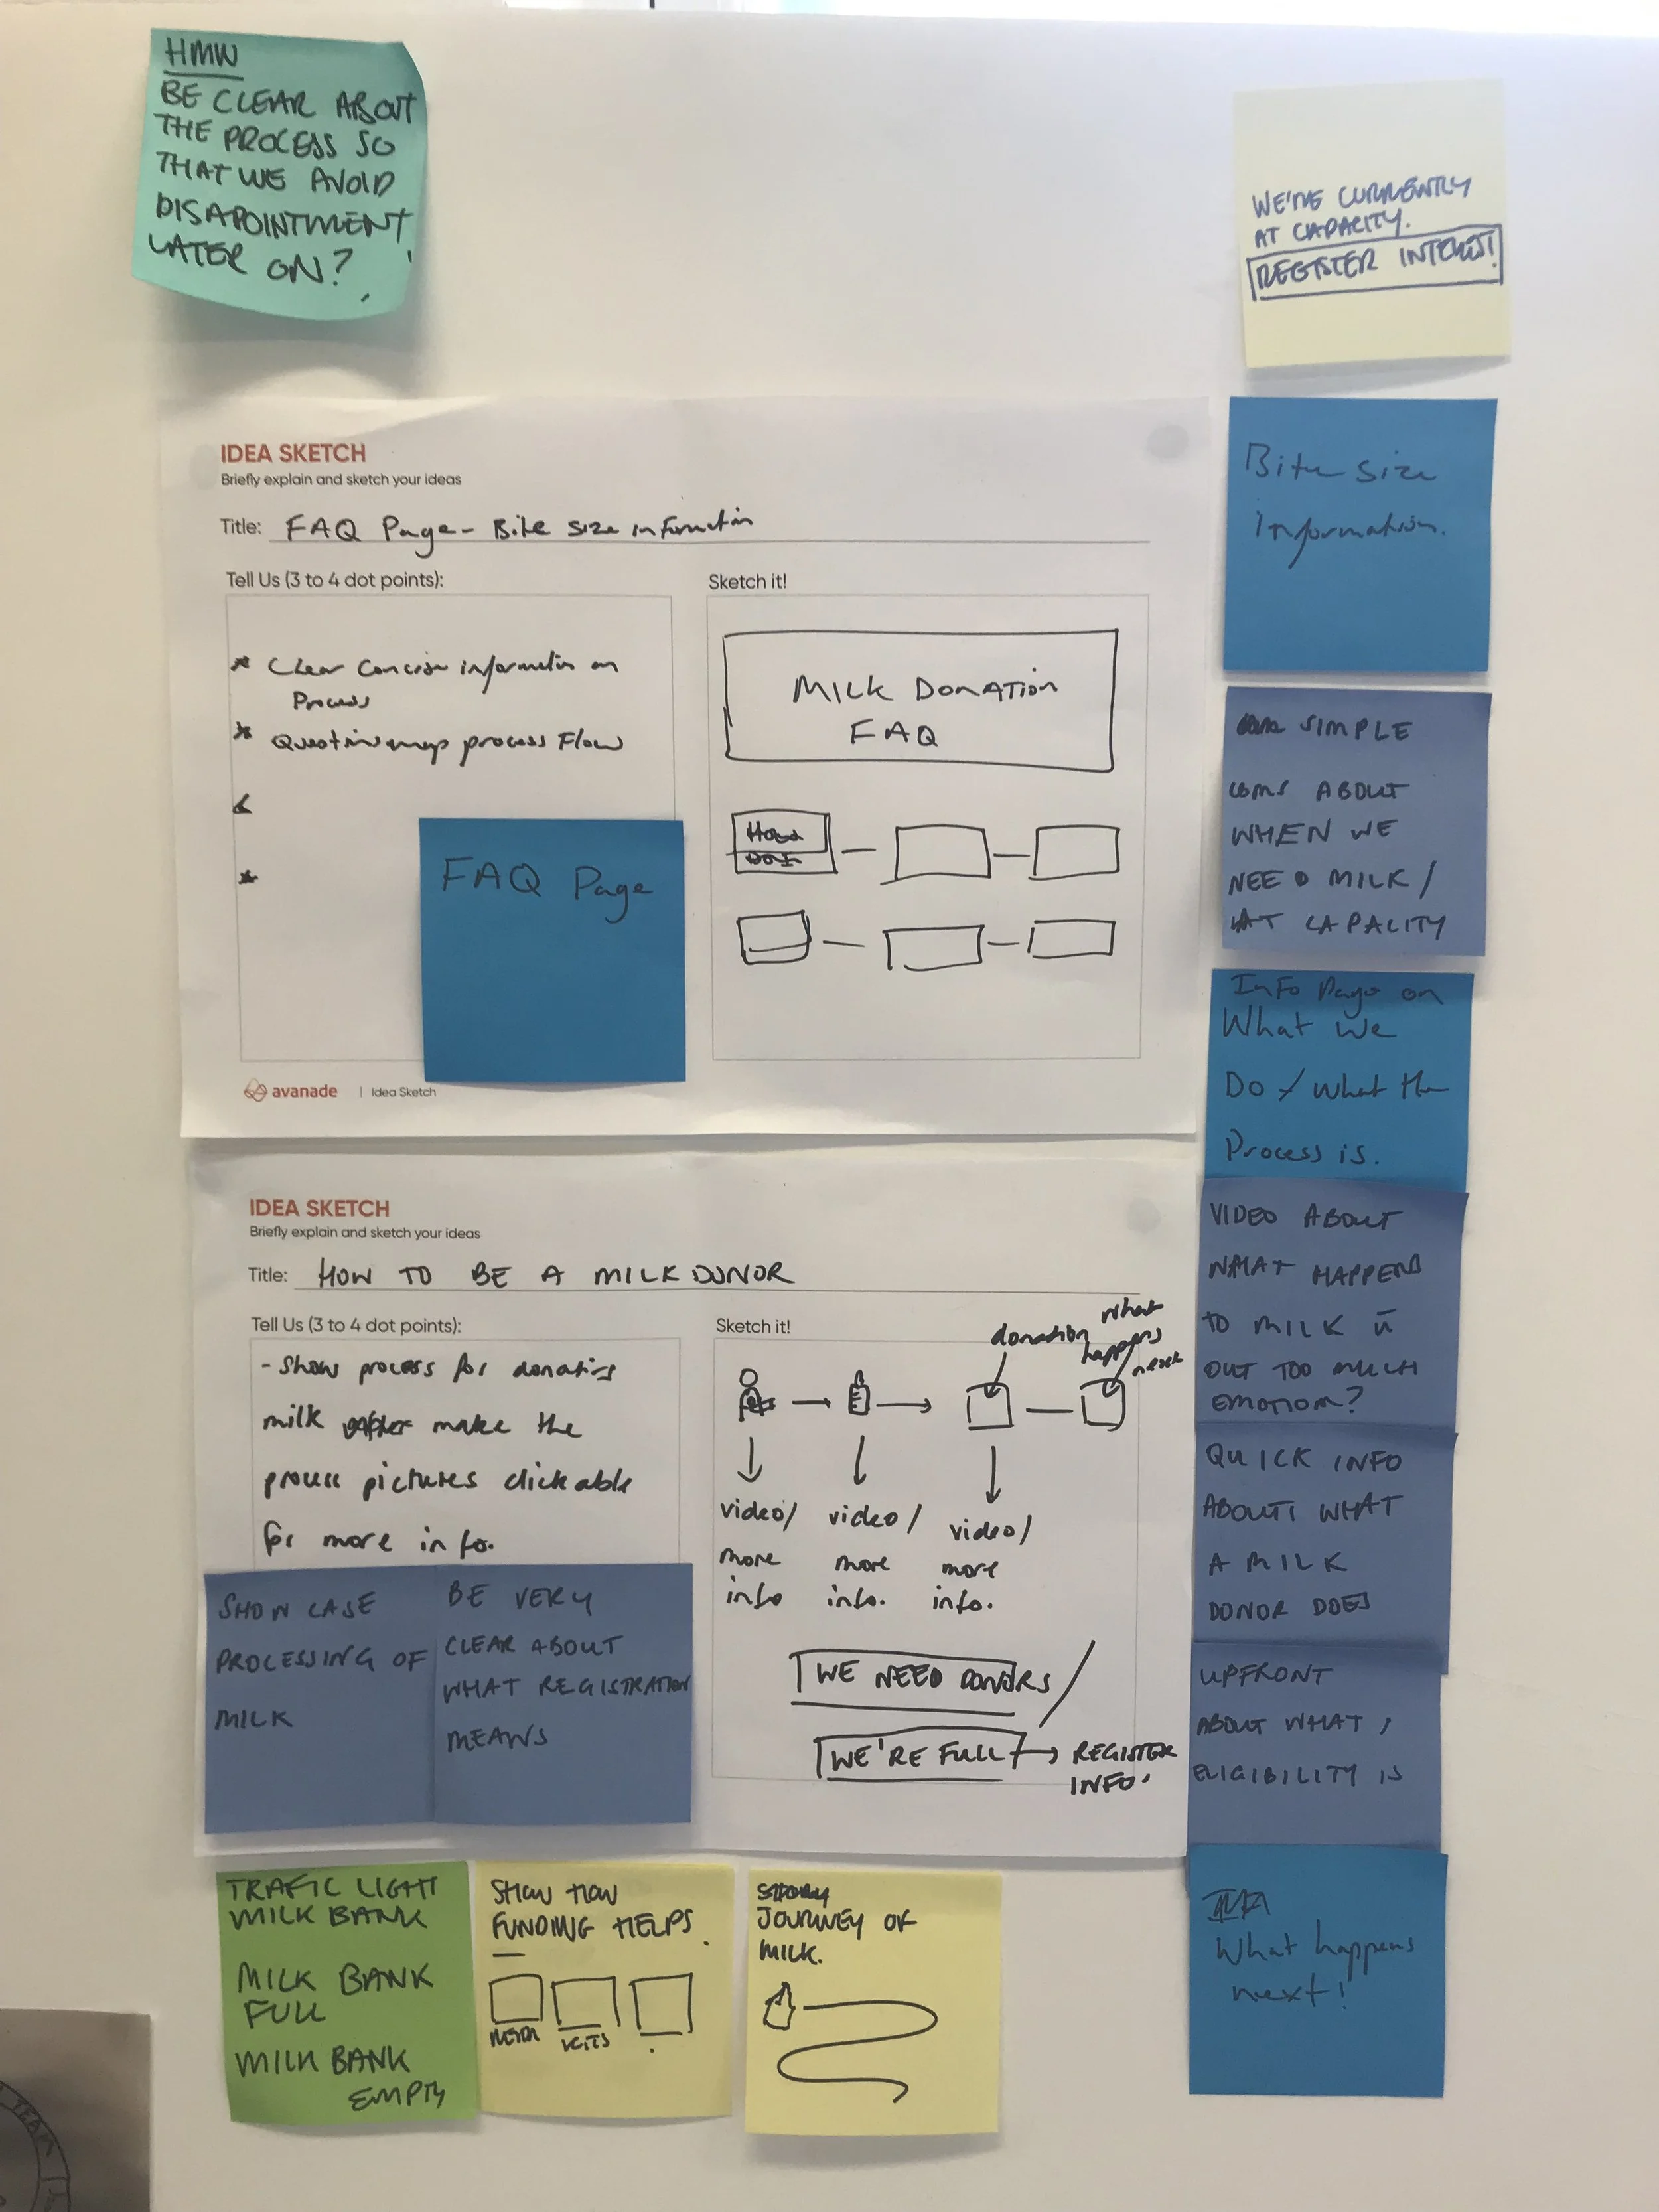 HMW
BE CLEAR ABOUT
THE PROCESS SO
THAT WE AVOID
DISAPOINTMENT
LATER ON?
WE'RE CURRENTLY
AT CAPACITY.
REGISTER INTEREST!
IDEA SKETCH
Briefly explain and sketch your ideas
Title: FAQ Page - Bite size information
Tell Us (3 to 4 dot points):
* Clear Concise information on
Process
* Questions map process Flow
*
*
FAQ Page
Sketch it!
MILK DONATION
FAQ
How
DO I
avanade | Idea Sketch
Bite size
Information.
SIMPLE
COMS ABOUT
WHEN WE
NEED MILK /
AT CAPACITY
Info Page on
What we
Do / What the
Process is.
VIDEO ABOUT
WHAT HAPPENS
TO MILK
OUT TOO MUCH
EMOTION?
QUICK INFO
ABOUT WHAT
A MILK
DONOR DOES
UPFRONT
ABOUT WHAT
ELIGIBILITY IS
What happens
next!
IDEA SKETCH
Briefly explain and sketch your ideas
Title: HOW TO BE A MILK DONOR
Tell Us (3 to 4 dot points):
- Show process for donating
milk make the
process pictures clickable
for more info.
SHOW CASE
PROCESSING OF
MILK
BE VERY
CLEAR ABOUT
WHAT REGISTRATION
MEANS
Sketch it!
donation
what
happens
next
video/
more
info
video/
more
info.
video/
more
info.
WE NEED DONORS /
WE'RE FULL → REGISTER
INFO.
TRAFIC LIGHT
MILK BANK
MILK BANK
FULL
MILK BANK
EMPTY
SHOW HOW
FUNDING HELPS.
KITS
STORY
JOURNEY OF
MILK.
TEAM